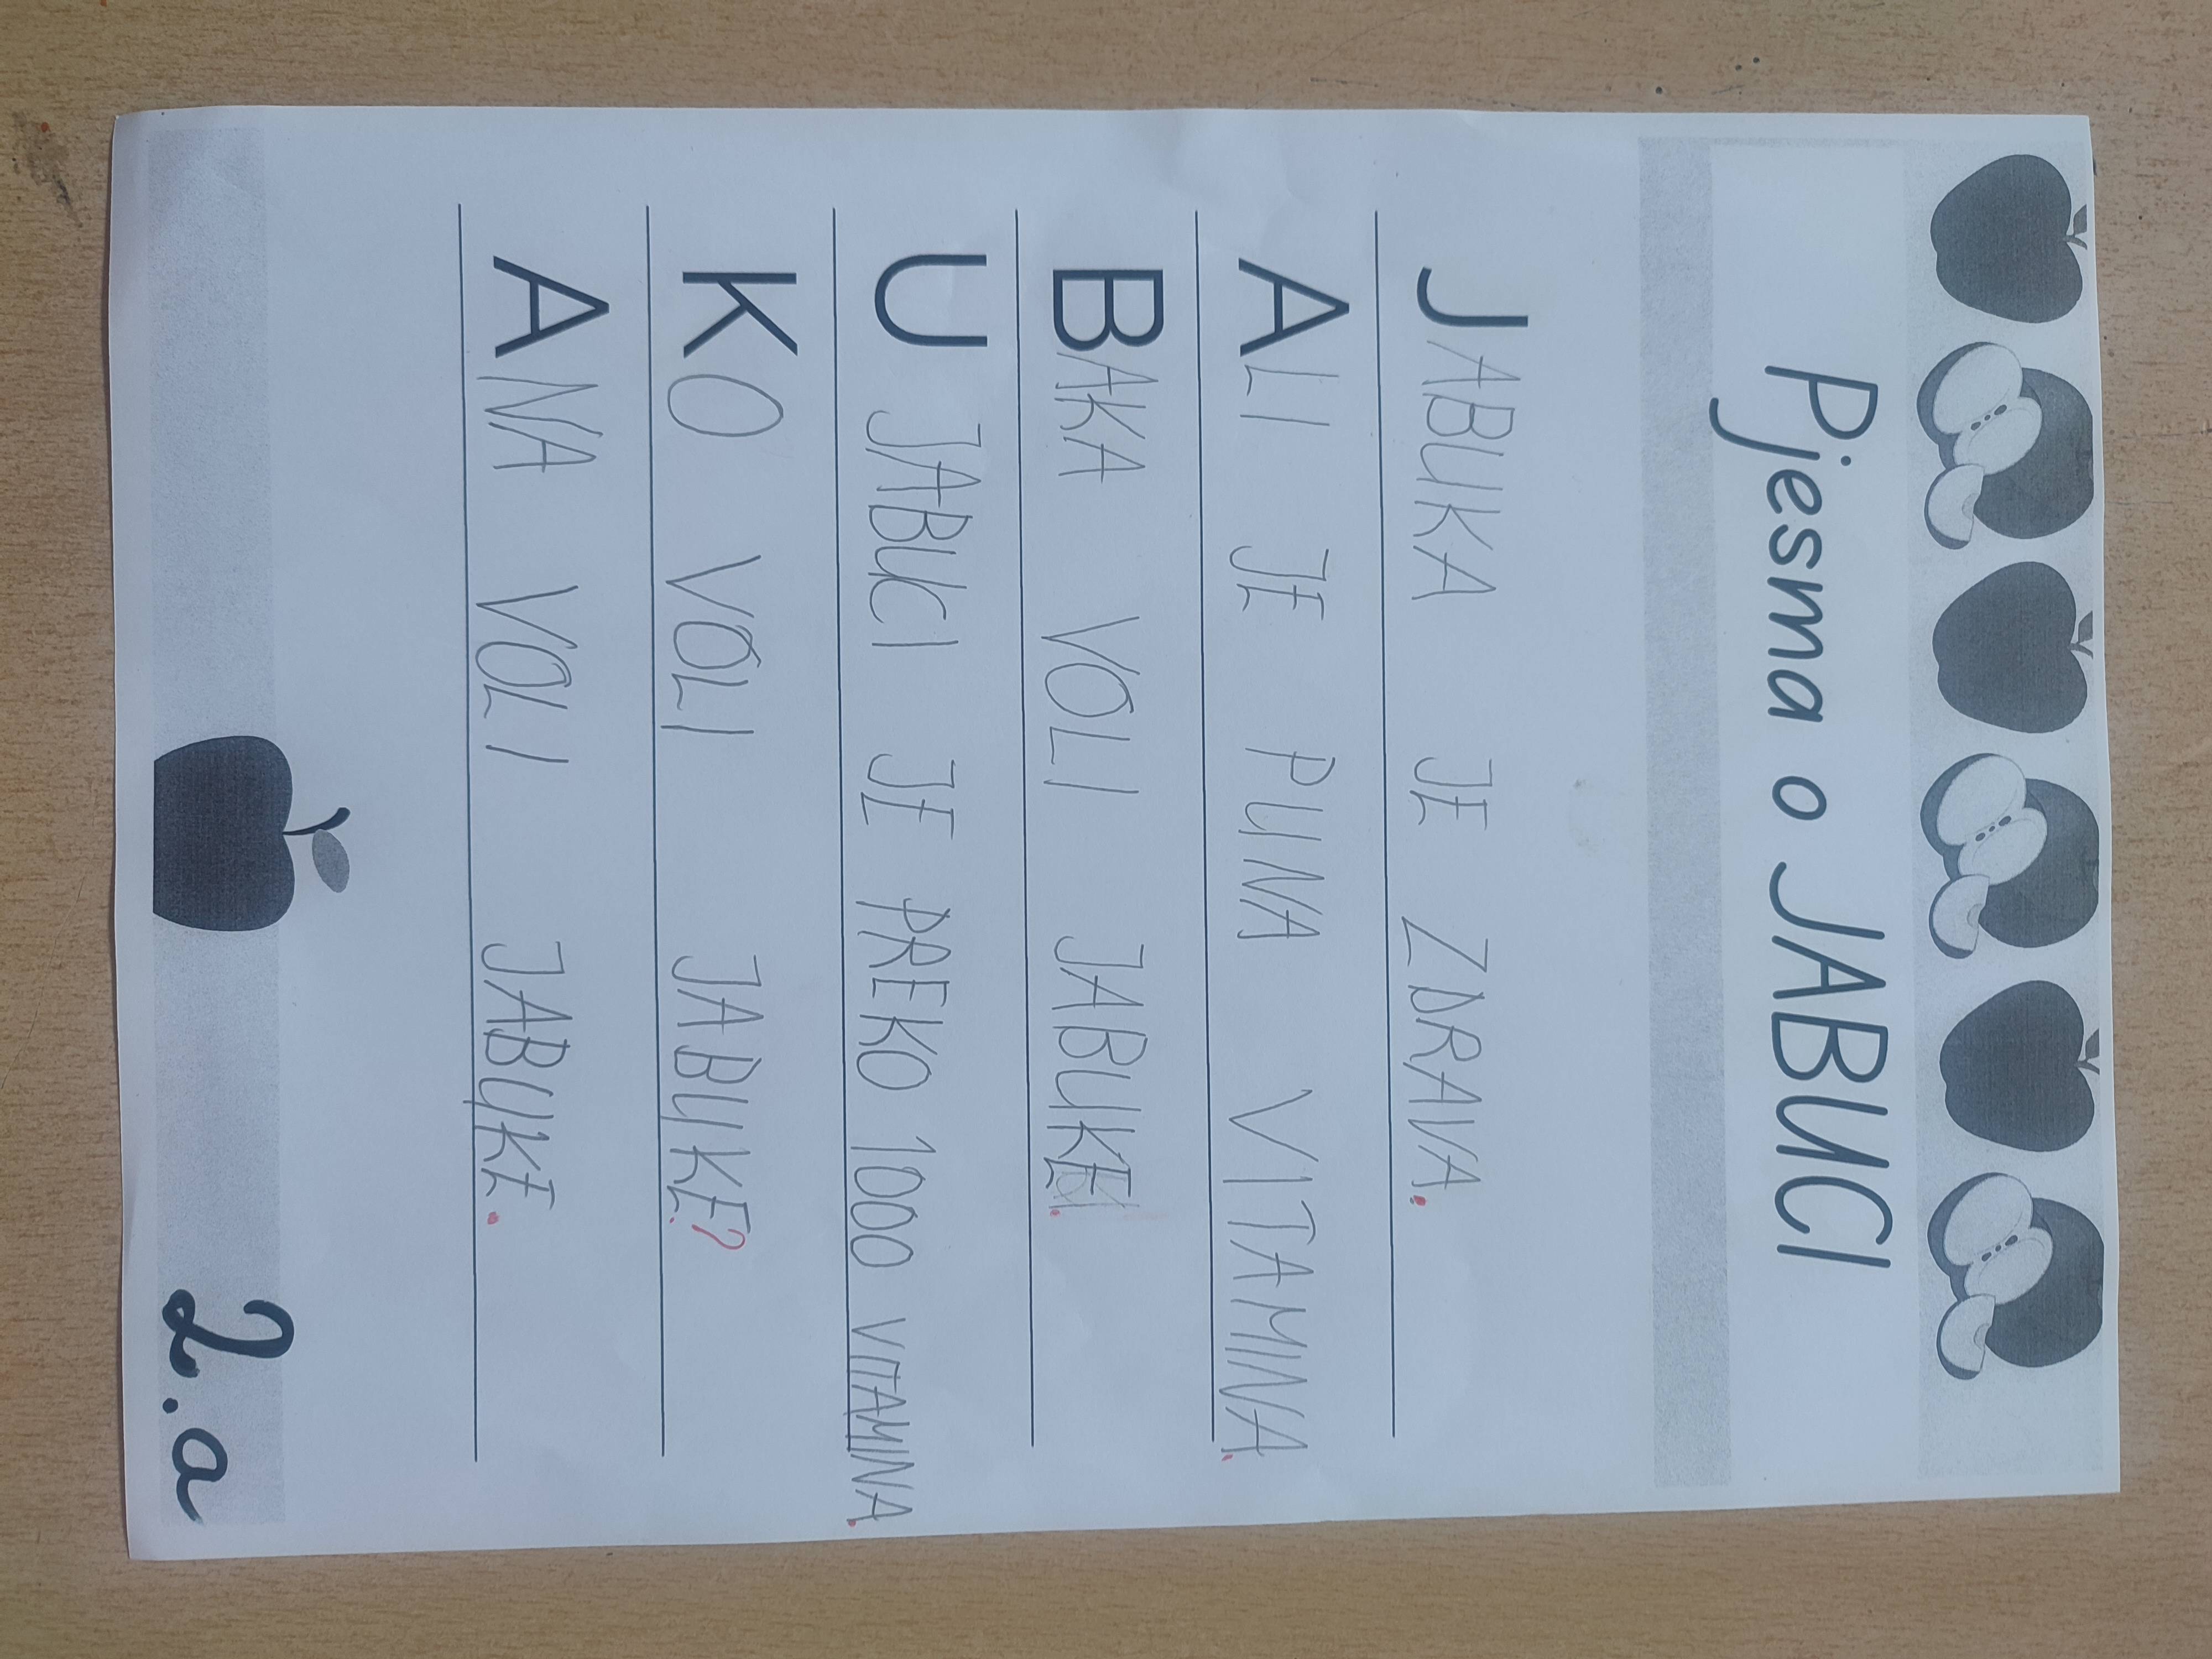 Pjesma o JABUCI
JABUKA JE ZDRAVA.
ALI JE PUNA VITAMINA.
BAKA VOLI JABUKE.
U JABUCI JE PREKO 1000 VITAMINA.
KO VOLI JABUKE?
ANA VOLI JABUKE.
2.a